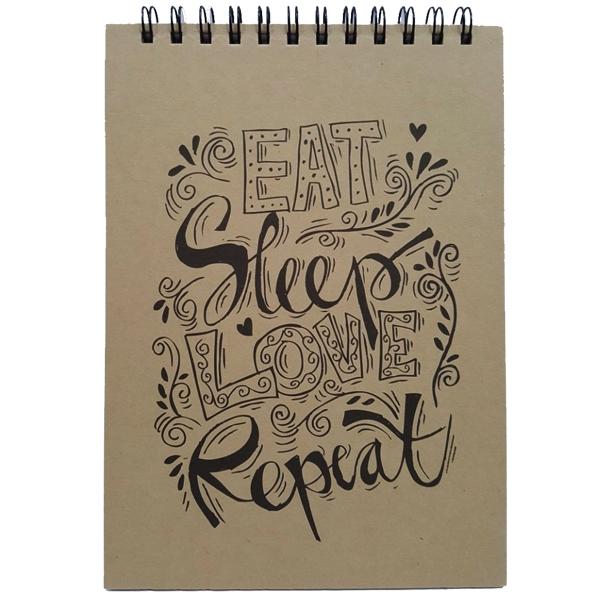 EAT
Sleep
LOVE
Repeat